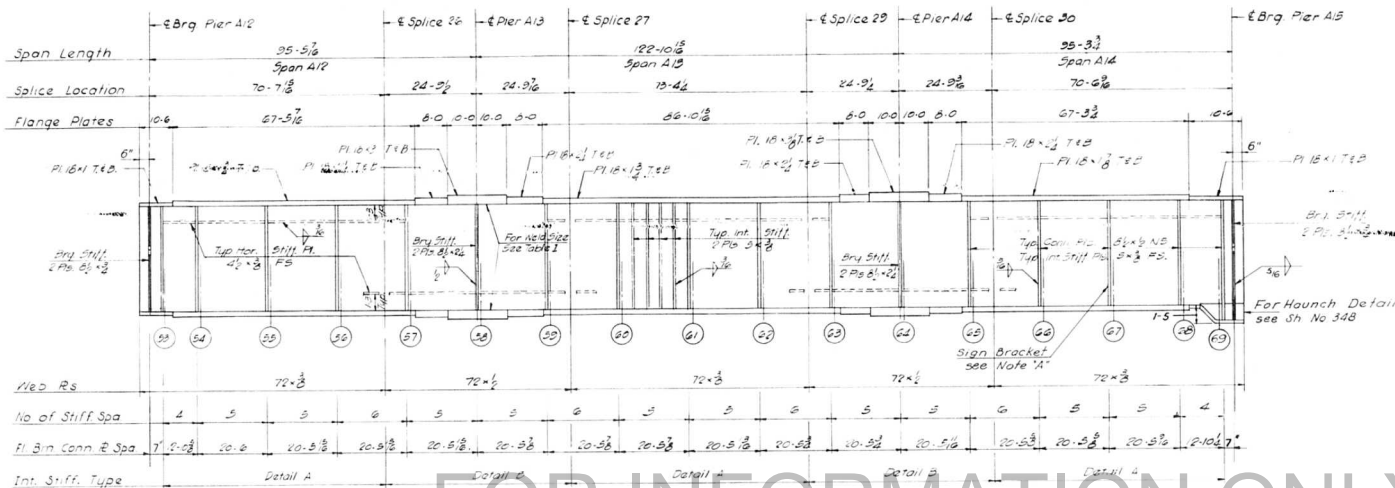 ℄ Brg Pier A12 ℄ Splice 26 ℄ Pier A13 ℄ Splice 27 ℄ Splice 29 ℄ Pier A14 ℄ Splice 30 ℄ Brg. Pier A15
Span Length 95-5 7/16 122-10 15/16 95-3 3/4
Span A12 Span A13 Span A14
Splice Location 70-7 15/16 24-9 1/2 24-9 7/16 73-4 1/4 24-9 1/4 24-9 3/16 70-6 9/16
Flange Plates 10-6 67-5 7/16 8-0 10-0 10-0 8-0 86-10 15/16 8-0 10-0 10-0 8-0 67-3 3/4 10-6
6" Pl. 18×3 T&B Pl. 18×3 1/8 T&B 6"
Pl. 18×1 T&B. Pl. 18×1 3/4 T&B Pl. 18×1 7/8 T&B Pl. 18×1 T&B
Brg Stiff.
2 Pls 8 1/2 × 3/4
Typ Hor. Stiff. Pl.
4 1/2 × 3/8 FS
3/16
Brg Stiff.
2 Pls. 8 1/2 × 2 1/4
1/2
For Weld Size
See Table I
Typ. Int. Stiff.
2 Pls 5 × 3/8
3/16
Brg Stiff.
2 Pls 8 1/2 × 2 1/4
Typ. Conn. Pls 8 1/2 × 1/2 NS
Typ Int Stiff Pls. 5 × 3/8 FS.
3/16
Brg. Stiff.
5/16
For Haunch Detail
see Sh No 348
1-5
Sign Bracket
see Note "A"
53 54 55 56 57 58 59 60 61 62 63 64 65 66 67 68 69
Web ℞s 72 × 3/8 72 × 1/2 72 × 3/8 72 × 1/2 72 × 3/8
No of Stiff. Spa 4 5 5 6 5 5 6 5 5 6 5 5 6 5 5 4
Fl Bm Conn. ℞ Spa 7" 20-6 20-5 15/16 20-5 15/16 20-5 7/8 20-5 7/8 20-5 7/8 12-10 1/4 7"
Int. Stiff. Type Detail A Detail B Detail A Detail B Detail A
FOR INFORMATION ONLY